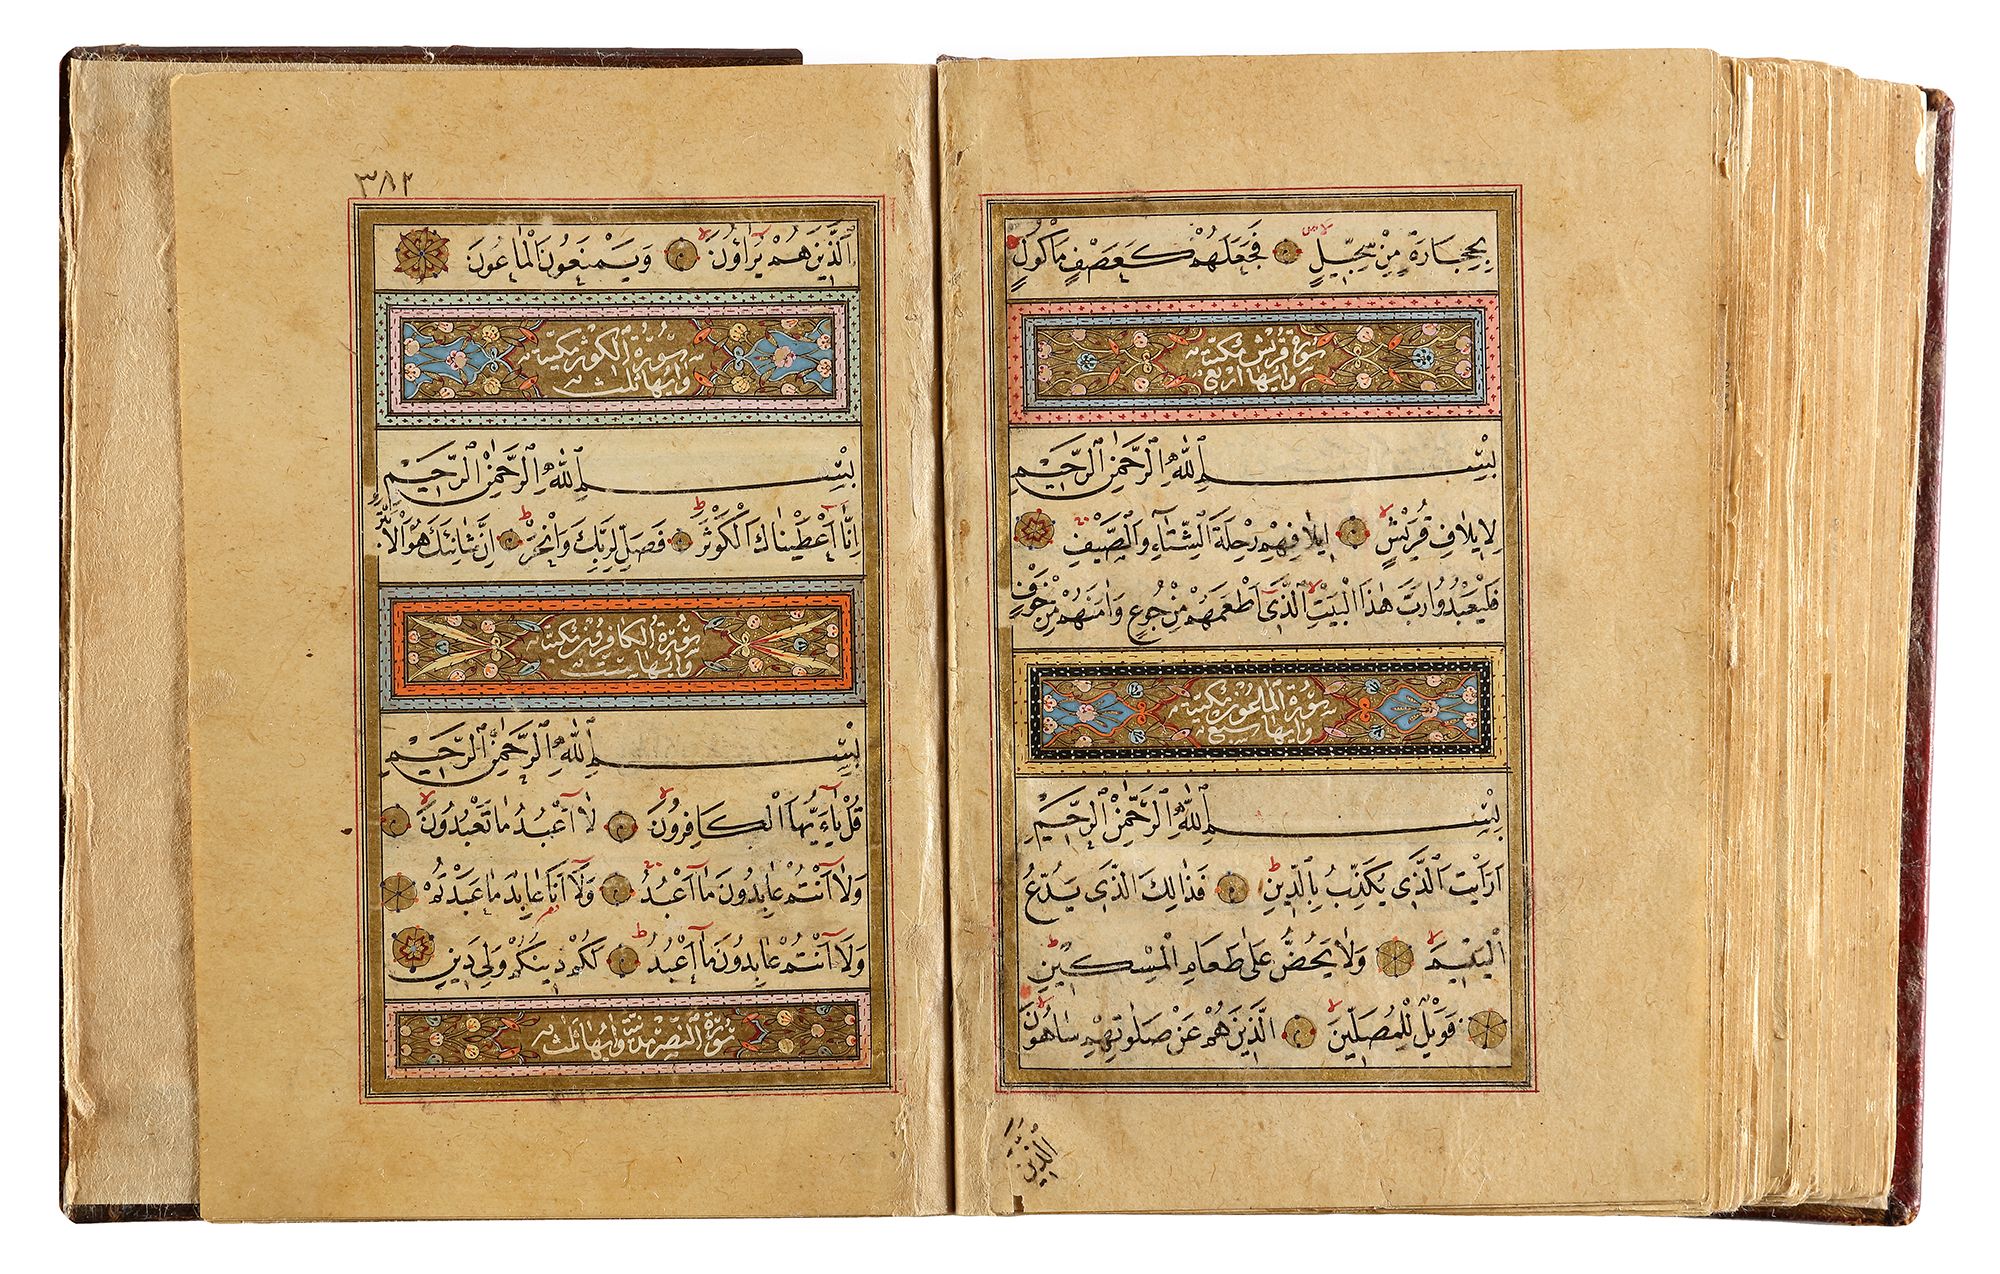 بِحِجَارَةٍ مِنْ سِجّيلٍ فَجَعَلَهُمْ كَعَصْفٍ مَأْكُولٍ
سورة قريش مكية
وايها اربع
بِسْمِ اللهِ الرَّحْمٰنِ الرَّحيمِ
لِايلَافِ قُرَيْشٍ ايلَافِهِمْ رِحْلَةَ الشِّتَاءِ وَالصَّيْفِ
فَلْيَعْبُدُوا رَبَّ هٰذَا الْبَيْتِ الَّذى اَطْعَمَهُمْ مِنْ جُوعٍ وَاٰمَنَهُمْ مِنْ خَوْفٍ
سورة الماعون مكية
وايها سبع
بِسْمِ اللهِ الرَّحْمٰنِ الرَّحيمِ
اَرَاَيْتَ الَّذى يُكَذِّبُ بِالدّينِ فَذٰلِكَ الَّذى يَدُعُّ
الْيَتيمَ وَلَا يَحُضُّ عَلٰى طَعَامِ الْمِسْكينِ
فَوَيْلٌ لِلْمُصَلّينَ الَّذينَ هُمْ عَنْ صَلَاتِهِمْ سَاهُونَ
الَّذينَ
٣٨٢
الَّذينَ هُمْ يُرَاؤُنَ وَيَمْنَعُونَ الْمَاعُونَ
سورة الكوثر مكية
وايها ثلث
بِسْمِ اللهِ الرَّحْمٰنِ الرَّحيمِ
اِنَّا اَعْطَيْنَاكَ الْكَوْثَرَ فَصَلِّ لِرَبِّكَ وَانْحَرْ اِنَّ شَانِئَكَ هُوَ الْاَبْتَرُ
سورة الكافرون مكية
وايها ست
بِسْمِ اللهِ الرَّحْمٰنِ الرَّحيمِ
قُلْ يَاءَيُّهَا الْكَافِرُونَ لَا اَعْبُدُ مَا تَعْبُدُونَ
وَلَا اَنْتُمْ عَابِدُونَ مَا اَعْبُدُ وَلَا اَنَا عَابِدٌ مَا عَبَدْتُمْ
وَلَا اَنْتُمْ عَابِدُونَ مَا اَعْبُدُ لَكُمْ دينُكُمْ وَلِىَ دينِ
سورة النصر مدنية وايها ثلث